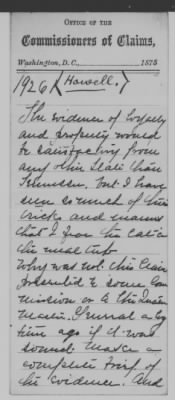 OFFICE OF THE
Commissioners of Claims,
Washington, D. C., 1875
1926 (Howell.)
The evidence of loyalty
and property would
be satisfactory from
any other State than
Tennessee, but I have
seen so much of the
tricks and
that I fear the cat in
the meal tub
Why was not this Claim
presented to some Com
mission or to the Quarter
master General a long
time ago if it was
sound? Make a
complete brief of
the evidence. And